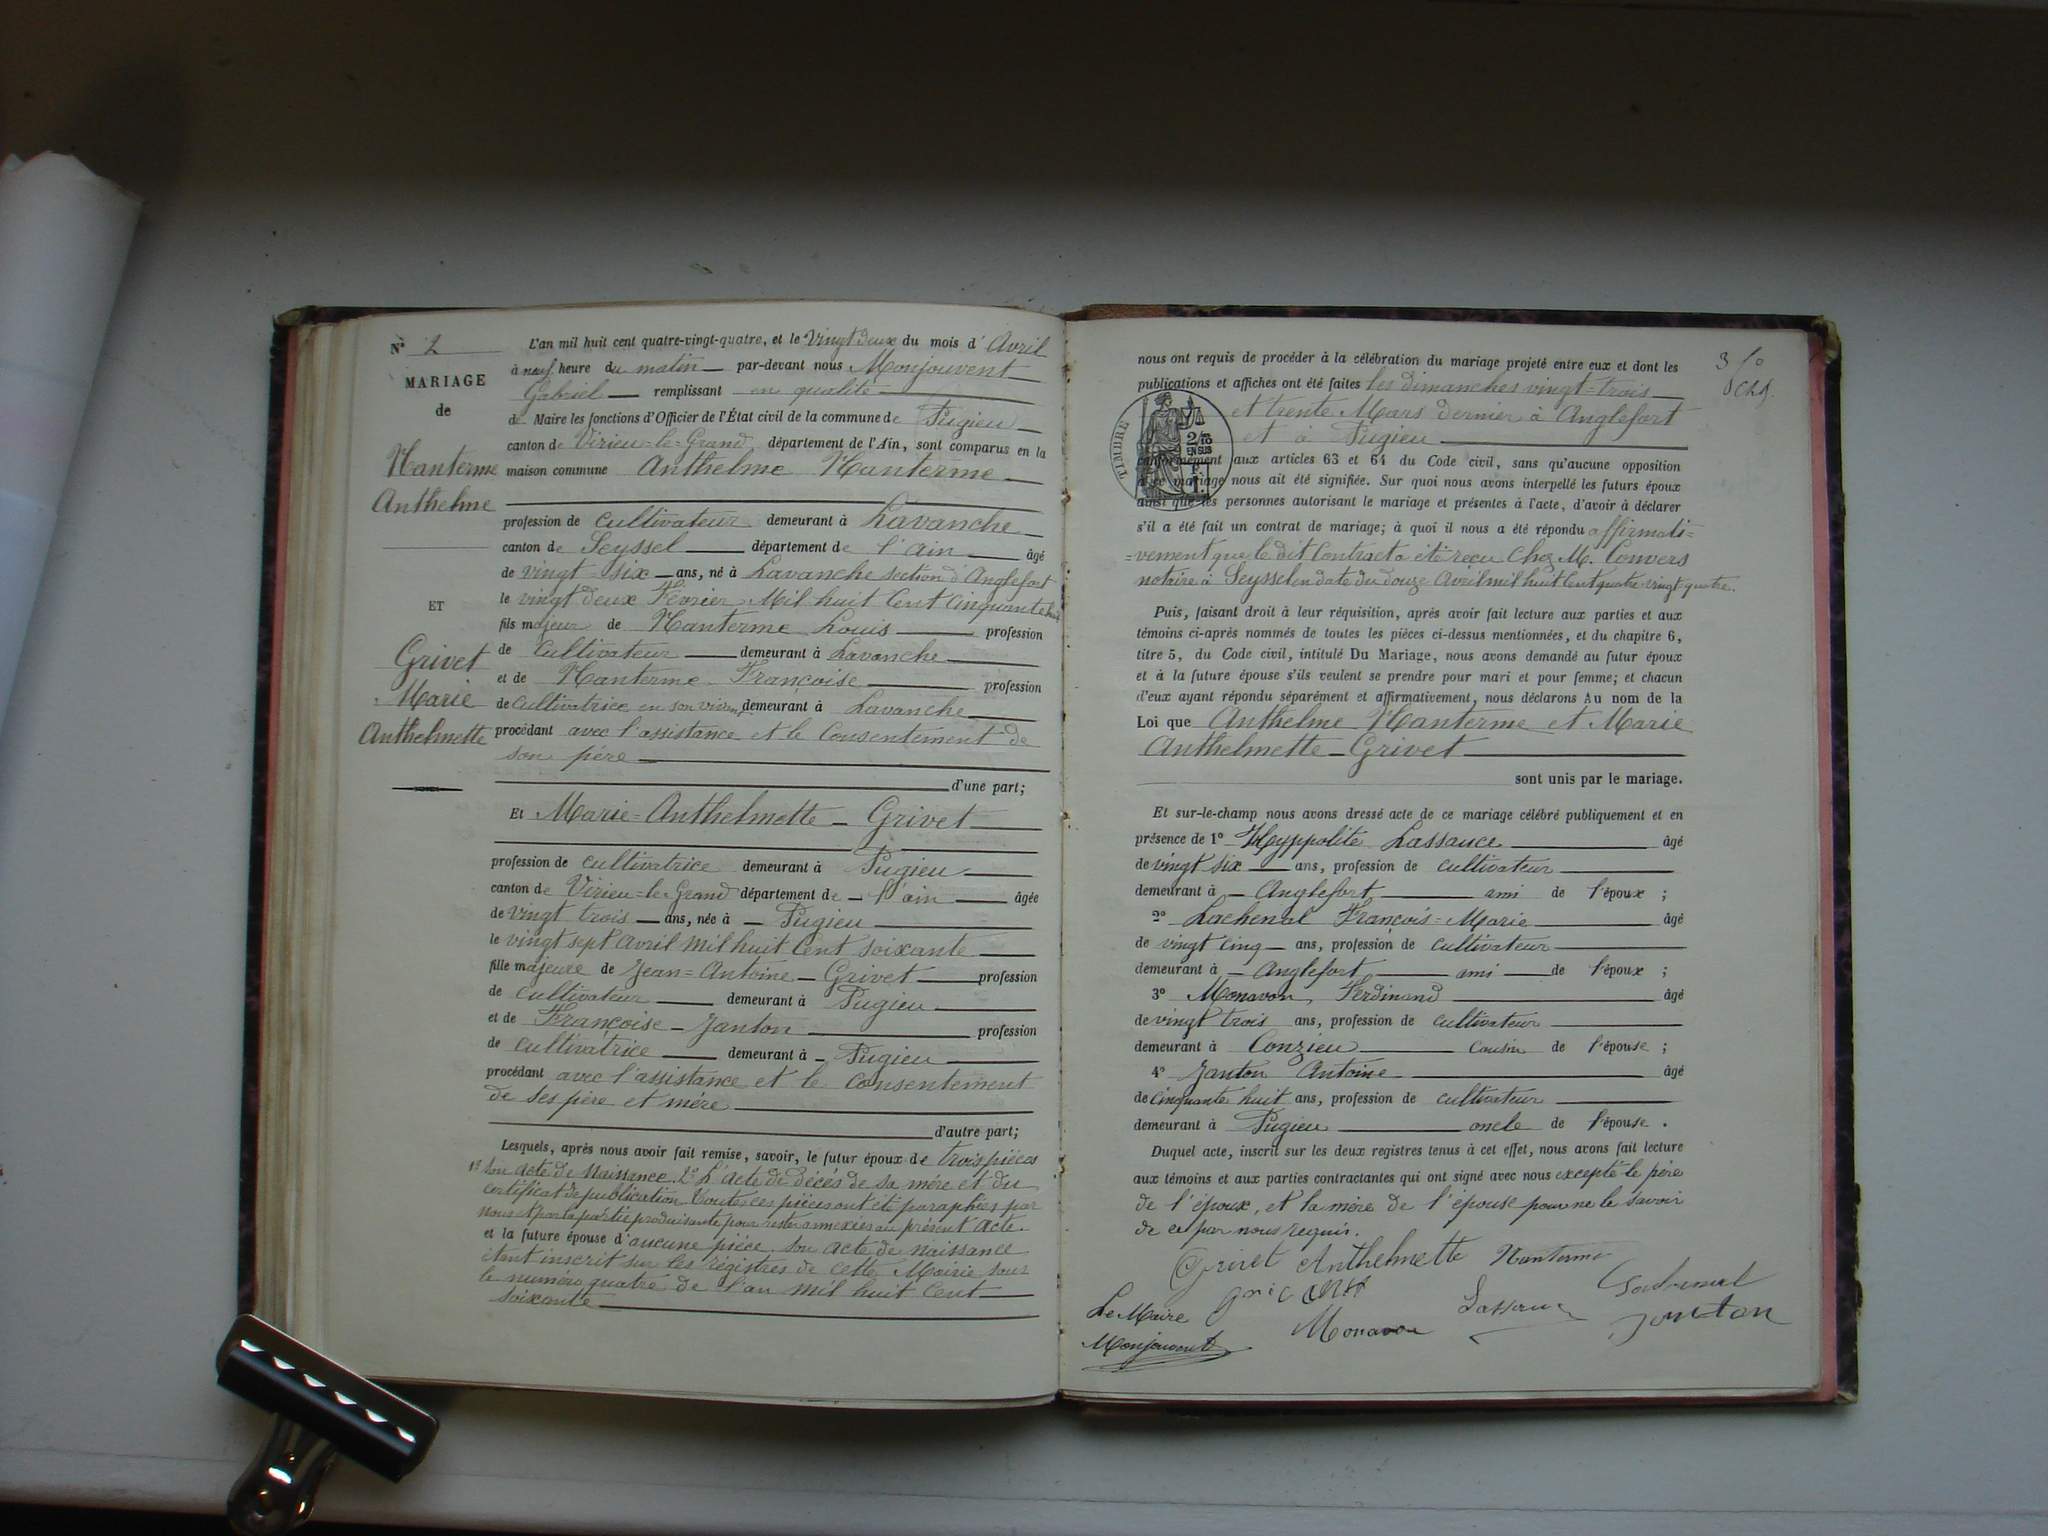 N° 2
MARIAGE
de
Nanterme
Anthelme
ET
Grivet
Marie
Anthelmette
L'an mil huit cent quatre-vingt-quatre, et le Vingt deux du mois d'Avril
à neuf heure du matin par-devant nous Monjouvent
Gabriel remplissant en qualité
de Maire les fonctions d'Officier de l'État civil de la commune de Pugieu
canton de Virieu=le=Grand département de l'Ain, sont comparus en la
maison commune Anthelme Nanterme
profession de cultivateur demeurant à Lavanche
canton de Seyssel département de l'ain âgé
de vingt-six ans, né à Lavanche section d'Anglefort
le vingt deux Février Mil huit Cent Cinquante huit
fils majeur de Nanterme Louis profession
de Cultivateur demeurant à Lavanche
et de Nanterme Françoise profession
de Cultivatrice en son vivant demeurant à Lavanche
procédant avec l'assistance et le Consentement de
son père
d'une part;
Et Marie=Anthelmette - Grivet
profession de cultivatrice demeurant à Pugieu
canton de Virieu=le-Grand département de l'ain âgée
de vingt trois ans, née à Pugieu
le vingt sept Avril Mil huit Cent soixante
fille majeure de Jean=Antoine - Grivet profession
de cultivateur demeurant à Pugieu
et de Françoise - Janton profession
de cultivatrice demeurant à Pugieu
procédant avec l'assistance et le consentement
de ses père et mère
d'autre part;
Lesquels, après nous avoir fait remise, savoir, le futur époux de trois pièces
1° Son acte de Naissance. 2° L'acte de décés de sa mère et du
certificat de publication. Toutes ces pièces ont été paraphées par
nous et par la partie produisante pour rester annexées au présent acte.
et la future épouse d'aucune pièce, son acte de naissance
étant inscrit sur les régistres de cette Mairie sous
le numéro quatre de l'an mil huit Cent
soixante
3 50
nous ont requis de procéder à la célébration du mariage projeté entre eux et dont les
publications et affiches ont été faites les dimanches vingt=trois
et trente Mars dernier à Anglefort
et à Pugieu
TIMBRE
2/10
EN SUS
conformément aux articles 63 et 64 du Code civil, sans qu'aucune opposition
à ce mariage nous ait été signifiée. Sur quoi nous avons interpellé les futurs époux
ainsi que les personnes autorisant le mariage et présentes à l'acte, d'avoir à déclarer
s'il a été fait un contrat de mariage; à quoi il nous a été répondu affirmati=
=vement que le dit Contract a été reçu Chez M. Convers
notaire à Seyssel en date du douze Avril mil huit Cent quatre-vingt-quatre.
Puis, faisant droit à leur réquisition, après avoir fait lecture aux parties et aux
témoins ci-après nommés de toutes les pièces ci-dessus mentionnées, et du chapitre 6,
titre 5, du Code civil, intitulé Du Mariage, nous avons demandé au futur époux
et à la future épouse s'ils veulent se prendre pour mari et pour femme; et chacun
d'eux ayant répondu séparément et affirmativement, nous déclarons Au nom de la
Loi que Anthelme Nanterme et Marie
Anthelmette - Grivet
sont unis par le mariage.
Et sur-le-champ nous avons dressé acte de ce mariage célébré publiquement et en
présence de 1° Hyppolite Lassauce âgé
de vingt six ans, profession de cultivateur
demeurant à Anglefort ami de l'époux ;
2° Lachenal François=Marie âgé
de vingt cinq ans, profession de cultivateur
demeurant à Anglefort ami de l'époux ;
3° Monavon Ferdinand âgé
de vingt trois ans, profession de cultivateur
demeurant à Conzieu cousin de l'épouse ;
4° Janton Antoine âgé
de Cinquante huit ans, profession de cultivateur
demeurant à Pugieu oncle de l'épouse .
Duquel acte, inscrit sur les deux registres tenus à cet effet, nous avons fait lecture
aux témoins et aux parties contractantes qui ont signé avec nous excepté le père
de l'époux, et la mère de l'épouse pour ne le savoir
de ce par nous requis.
Grivet Anthelmette Nanterme
Le Maire
Monjouvent
Monavon
Janton